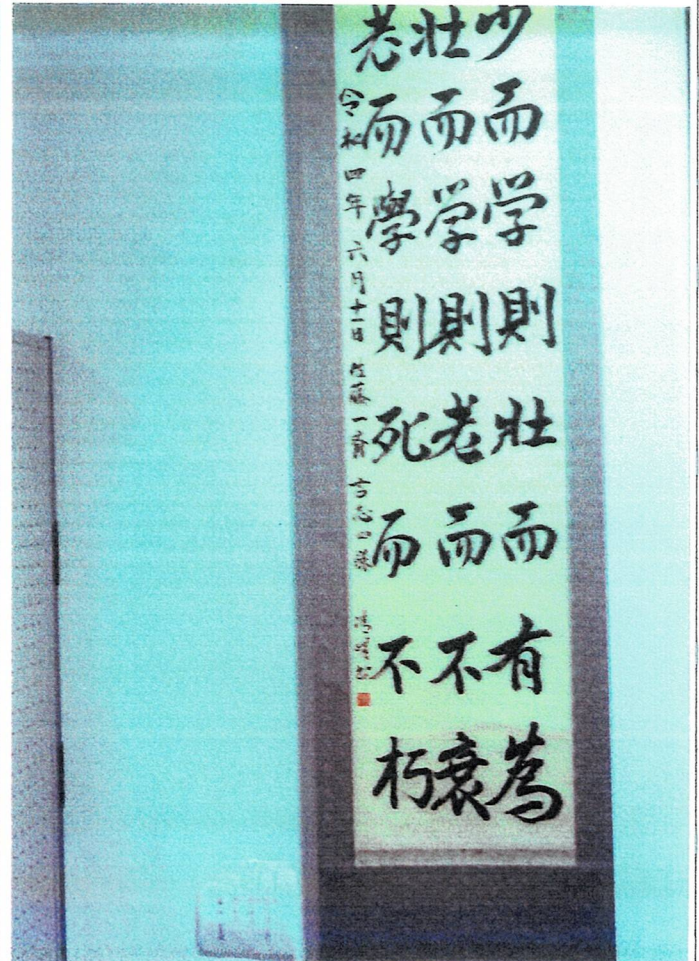 少而学則壮而有為
壮而学則老而不衰
老而學則死而不朽
令和四年 六月十一日 佐藤一斎 言志四録